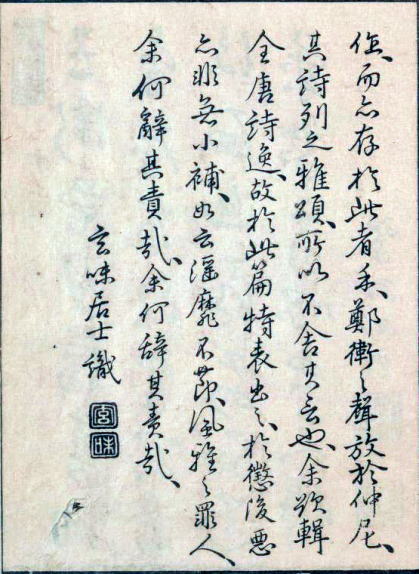 而亦存於此者、鄭衛之聲放於仲尼、
其詩列之雅頌、所以不舍其言也、余欲輯
全唐詩逸、故於此篇特表出之、於懲後悪
亦非無小補、如云淫靡不節、風雅之罪人、
余何辭其責哉、余何辞其責哉、
玄味居士識
玄味